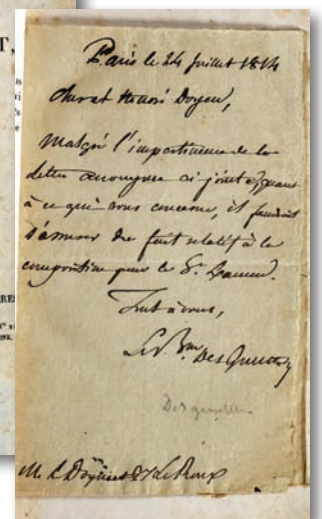 T,
Paris le 24 Juillet 1814
cher et honoré Doyen,
Malgré l'impertinence de la
lettre anonyme ci jointe quant
à ce qui vous concerne, il faudrait
s'assurer du fait relatif à la
composition pour le Sr.
Tout à vous,
Le Bon DesGenettes
Desgenettes.
M. Le Doyen Le Roux